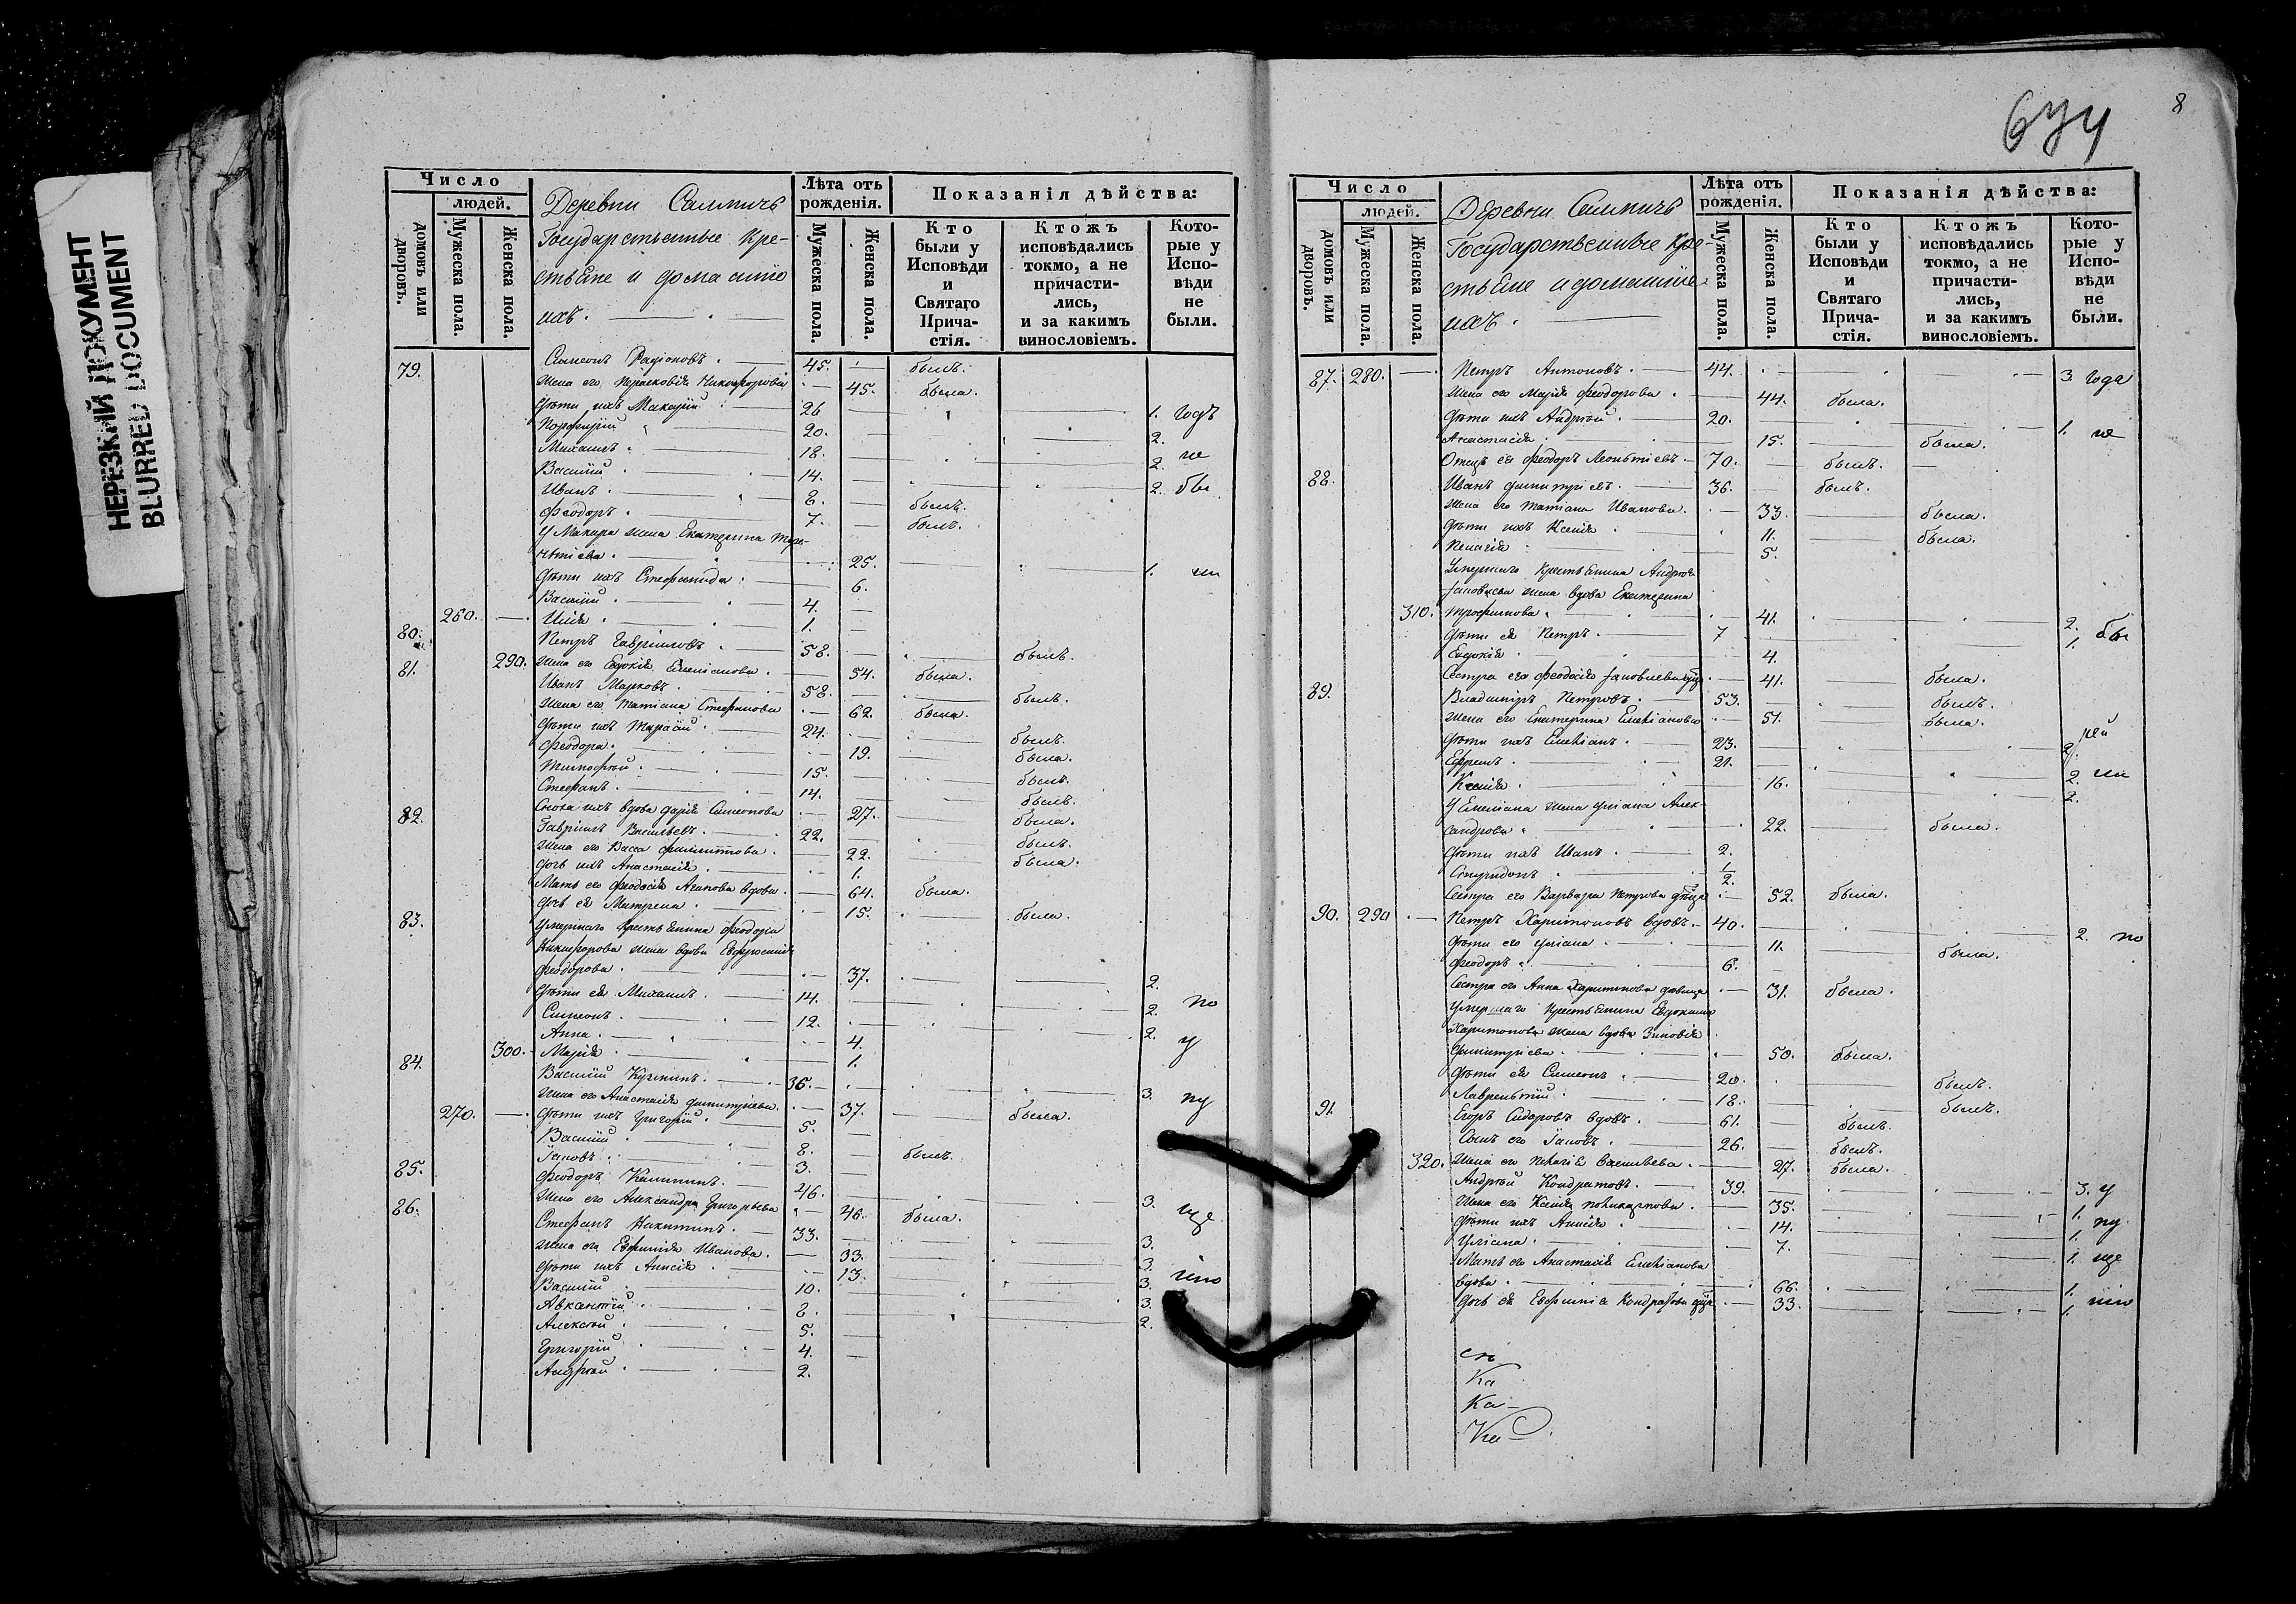 НЕРЕЗКИЙ ДОКУМЕНТ
BLURRED DOCUMENT
Число
людей.
домовъ или дворовъ.
Мужеска пола.
Женска пола.
Деревни
Государственные кре-
стьяне и домашніе
ихъ.
Лѣта отъ рожденія.
Мужеска пола.
Женска пола.
Показанія дѣйства:
Кто были у Исповѣди и Святаго Прича-стія.
Ктожъ исповѣдались токмо, а не причасти-лись, и за какимъ винословіемъ.
Кото-рые у Испо-вѣди не были.
79. Симеонъ Радіоновъ. 45. былъ.
Жена его Парасковія Никифорова 45. была.
Дѣти ихъ Макарій 26 1. годъ
Порфирій 20. 2.
Михаилъ. 18. 2. не
Василій 14. 2. бы
Иванъ. 8. былъ.
Феодоръ. 7. былъ.
У Макара жена Екатерина
25. 1. ли
Дѣти ихъ Стефанида 6.
Василій. 4.
260. Илія. 1.
80. Петръ Гавріиловъ. 58. былъ.
290. Жена его Евдокія Емеліанова. 54. была.
81. Иванъ Марковъ. 58. былъ.
Жена его Татіана Стефанова 62. была.
Дѣти ихъ Тарасій. 24. былъ.
Феодора. 19. была.
Тимофей. 15. былъ.
Стефанъ. 14. былъ.
Сноха ихъ вдова Дарія Симеонова 27. была.
82. Гавріилъ Васильевъ. 22. былъ.
Жена его Васса Филиппова. 22. была.
Дочь ихъ Анастасія. 1.
Мать его Феодосія Агапова вдова. 64. была.
Дочь ея Матрена. 15. была.
83. Умершаго крестьянина Феодора
Никифорова жена вдова Евфросинія
Феодорова. 37. 2.
Дѣти ея Михаилъ. 14. 2. по
Симеонъ. 12. 2.
Анна. 4. у
300. Марія. 1.
84. Василій Кузминъ. 36. 3.
Жена его Анастасія Димитріева. 37. была. пу
270. Дѣти ихъ Григорій. 5.
Василій 8. былъ.
Іаковъ. 3.
85. Феодоръ Калининъ. 46. 3.
Жена его Александра Григорьева 46. была. ще
86. Стефанъ Никитинъ. 33. 3.
Жена его Евфимія Иванова. 33. 3.
Дѣти ихъ Анисія. 13. 3. нію
Василій 10. 3.
8. 2.
Алексѣй. 5.
Григорій 4.
Андрей. 2.
674
8
Число
людей.
домовъ или дворовъ.
Мужеска пола.
Женска пола.
Деревни
Государственные кре-
стьяне и домашніе
ихъ.
Лѣта отъ рожденія.
Мужеска пола.
Женска пола.
Показанія дѣйства:
Кто были у Исповѣди и Святаго Прича-стія.
Ктожъ исповѣдались токмо, а не причасти-лись, и за какимъ винословіемъ.
Кото-рые у Испо-вѣди не были.
87. 280. Петръ Антоновъ. 44. 3. года
Жена его Марія Феодорова. 44. была.
Дѣти ихъ Андрей. 20. 1. не
Анастасія. 15. была.
Отецъ ея Феодоръ Леонтіевъ. 70. былъ.
88. Иванъ Димитріевъ. 36. былъ.
Жена его Татіана Иванова. 33. была.
Дѣти ихъ Ксенія 11. была.
Пелагія 5.
Умершаго крестьянина Андрея
Іаковлева жена вдова Екатерина
310. Трофимова. 41. 2.
Дѣти ея Петръ. 7 1. бы
Евдокія. 4.
Сестра его Феодосія Іаковлева 41. была.
89. Владиміръ Петровъ. 53. былъ.
Жена его Екатерина Емеліанова 51. была.
Дѣти ихъ Емеліанъ. 23. 2.
Ефремъ. 21. 2. ли
Ксенія. 16. 2.
У Емеліана жена Уліана Алек-
сандрова 22. была.
Дѣти ихъ Иванъ. 2.
Спиридонъ 1/2.
Сестра его Варвара Петрова 52. была.
90. 290 Петръ Харитоновъ вдовъ. 40. 2. по
Дѣти его Уліана 11. была.
Феодоръ. 6.
Сестра его Анна Харитонова девица 31. была.
Умершаго крестьянина Евдокима
Харитонова жена вдова Зиновія
Димитріева. 50. была.
Дѣти ея Симеонъ. 20. былъ.
Лаврентій 18. былъ.
91. Егоръ Сидоровъ вдовъ. 61. былъ.
Сынъ его Іаковъ. 26. былъ.
320. Жена его Пелагія Васильева. 27. была.
Андрей Кондратовъ. 39. 3. у
Жена его Ксенія Поликарпова. 35. 1.
Дѣти ихъ Анисія. 14. 1. пу
Уліана. 7. 1. ще
Мать его Анастасія Емеліанова
вдова. 66. 1.
Дочь ея Евфимія Кондратова 33. 1. нію
Ка
Ка